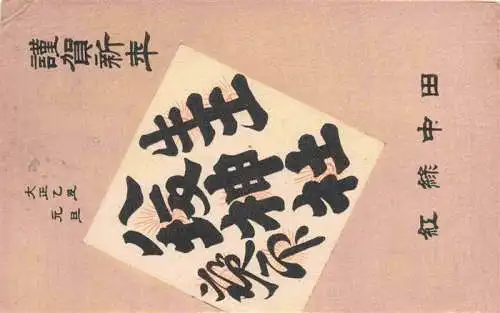 田中緑紅
牛王
八坂神社
謹賀新年
大正乙丑
元旦